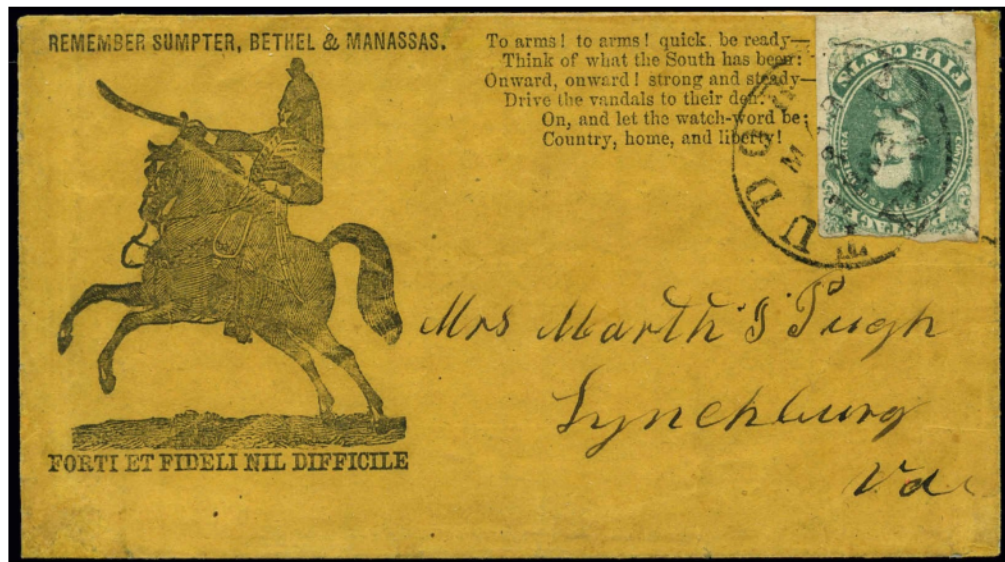 REMEMBER SUMPTER, BETHEL & MANASSAS.
To arms! to arms! quick. be ready—
Think of what the South has been:
Onward, onward! strong and steady—
Drive the vandals to their den.
On, and let the watch-word be:
Country, home, and liberty!
FIVE CENTS
FORTI ET FIDELI NIL DIFFICILE
Mrs Marth S Pugh
Lynchburg
Va